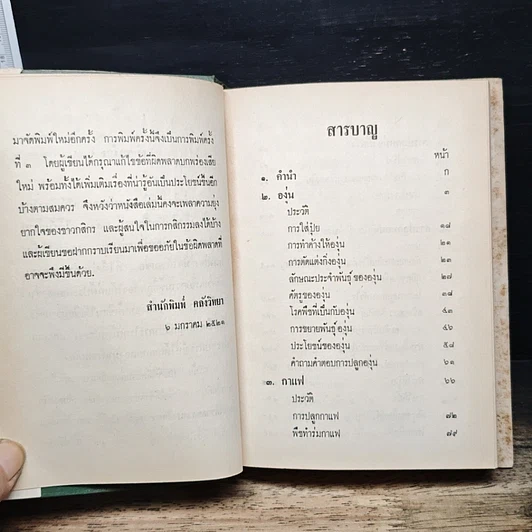 มาจัดพิมพ์ใหม่อีกครั้ง การพิมพ์ครั้งนี้จึงเป็นการพิมพ์ครั้ง
ที่ ๓ โดยผู้เขียนได้กรุณาแก้ไขข้อที่ผิดพลาดบกพร่องเสีย
ใหม่ พร้อมทั้งได้เพิ่มเติมเรื่องที่น่ารู้อันเป็นประโยชน์ขึ้นอีก
บ้างตามสมควร จึงหวังว่าหนังสือเล่มนี้คงจะเพลาความยุ่ง
ยากใจของชาวกสิกร และผู้สนใจในการกสิกรรมลงได้บ้าง
และผู้เขียนขอฝากกราบเรียนมาเพื่อขออภัยในข้อผิดพลาดที่
อาจจะพึงมีขึ้นด้วย.
สำนักพิมพ์ คลังวิทยา
๖ มกราคม ๒๕๒๑
สารบาญ
หน้า
๑. คำนำ ก
๒. องุ่น ๓
ประวัติ
การใส่ปุ๋ย ๑๘
การทำค้างให้องุ่น ๒๑
การตัดแต่งกิ่งองุ่น ๒๓
ลักษณะประจำพันธุ์ของององุ่น ๒๗
ศัตรูขององุ่น ๓๘
โรคพืชที่เป็นกับองุ่น ๔๓
การขยายพันธุ์องุ่น ๔๖
ประโยชน์ขององุ่น ๕๘
คำถามคำตอบการปลูกองุ่น ๖๑
๓. กาแฟ ๖๖
ประวัติ
การปลูกกาแฟ ๗๒
พืชทำร่มกาแฟ ๗๙